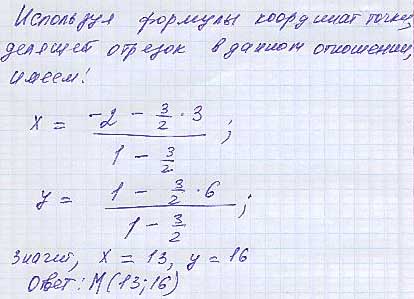 Используя формулы координат точки,
делящей отрезок в данном отношении,
имеем:
x = (-2 - 3/2 · 3) / (1 - 3/2) ;
y = (1 - 3/2 · 6) / (1 - 3/2) ;
Значит, x = 13, y = 16
Ответ: M(13;16)